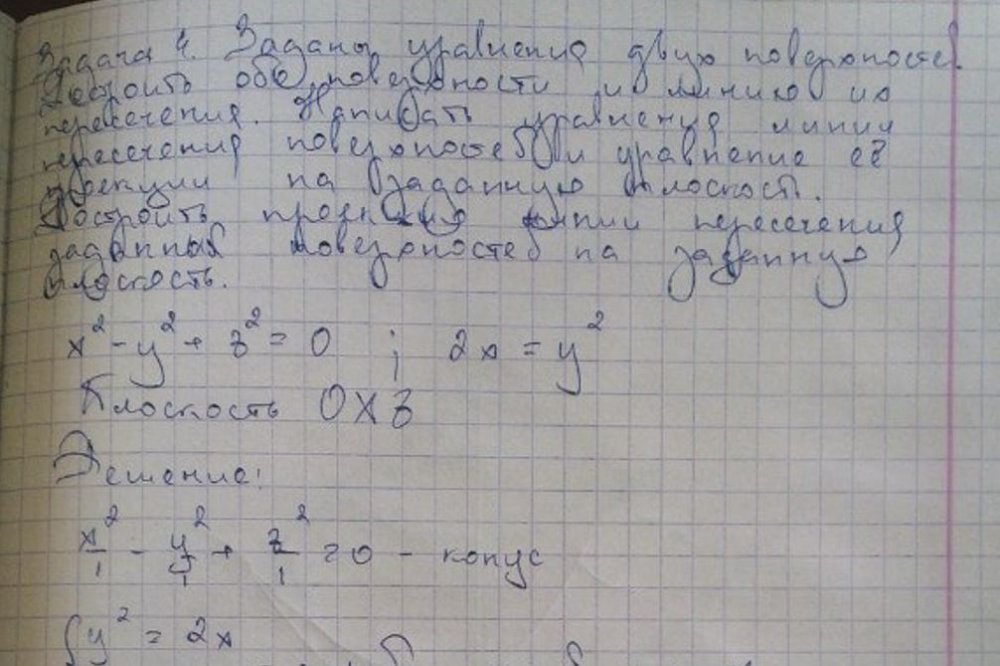 Задача 4. Заданы уравнения двух поверхностей
Построить обе поверхности и линию их
пересечения. Написать уравнения линии
пересечения поверхностей и уравнение её
проекции на заданную плоскость.
Построить проекцию линии пересечения
заданных поверхностей на заданную
плоскость.
x² - y² + z² = 0 ; 2x = y²
Плоскость OXZ
Решение:
x²/1 - y²/1 + z²/1 = 0 - конус
{ y² = 2x